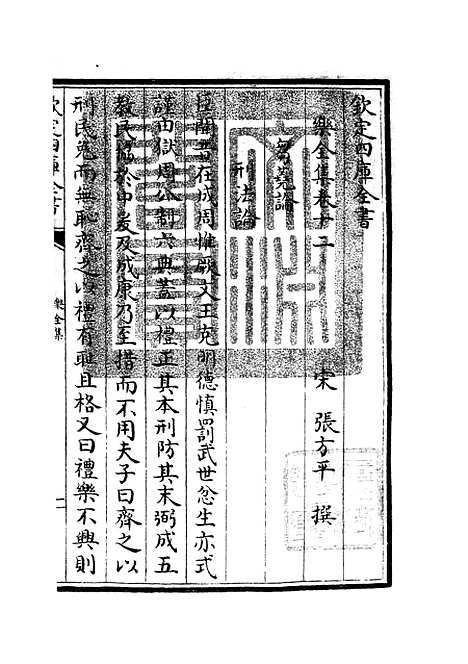 欽定四庫全書
樂全集卷十二
宋 張方平 撰
芻蕘論
刑法論
臣聞昔在成周惟厥文王克明德慎罰武世忿生亦式
謹由獄周公制六典蓋以禮正其本刑防其末弼成五
教民協於中爰及成康乃至措而不用夫子曰齊之以
刑民免而無恥齊之以禮有恥且格又曰禮樂不興則
欽定四庫全書
樂全集